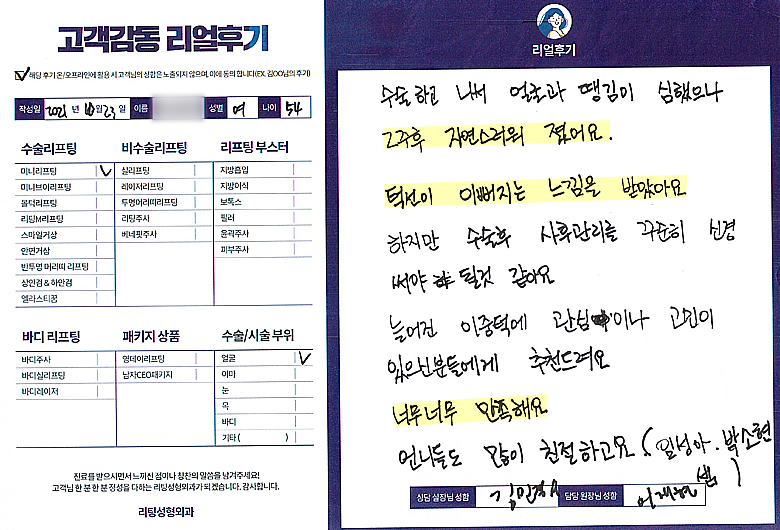 고객감동 리얼후기
해당 후기 온/오프라인에 활용 시 고객님의 성함은 노출되지 않으며, 이에 동의 합니다(EX, 김OO님의 후기)
작성일 2021 년 10 월 23 일 이름 성별 여 나이 54
수술리프팅
미니리프팅
미니브이리프팅
몰덕리프팅
리팅M리프팅
스마일거상
안면거상
반투명 머리띠 리프팅
상안검 & 하안검
엘라스티꿈
비수술리프팅
실리프팅
레이저리프팅
투명머리띠리프팅
리팅주사
베네핏주사
리프팅 부스터
지방흡입
지방이식
보톡스
필러
윤곽주사
피부주사
바디 리프팅
바디주사
바디실리프팅
바디레이저
패키지 상품
영데이리프팅
남자CEO패키지
수술/시술 부위
얼굴
이마
눈
목
바디
기타 ( )
진료를 받으시면서 느끼신 점이나 칭찬의 말씀을 남겨주세요!
고객님 한 분 한 분 정성을 다하는 리팅성형외과가 되겠습니다. 감사합니다.
리팅성형외과
리얼후기
수술 하고 나서 얼얼과 땡김이 심했으나
2주후 자연스러워 졌어요.
턱선이 이뻐지는 느낌을 받았아요
하지만 수술후 사후관리를 꾸준히 신경
써야 될것 같아요
늘어진 이중턱에 관심이나 고민이
있으신분들에게 추천드려요
너무너무 만족해요
언니들도 많이 친절하고요 ( 임성아. 박소현
쌤 )
상담 실장님 성함 담당 원장님 성함